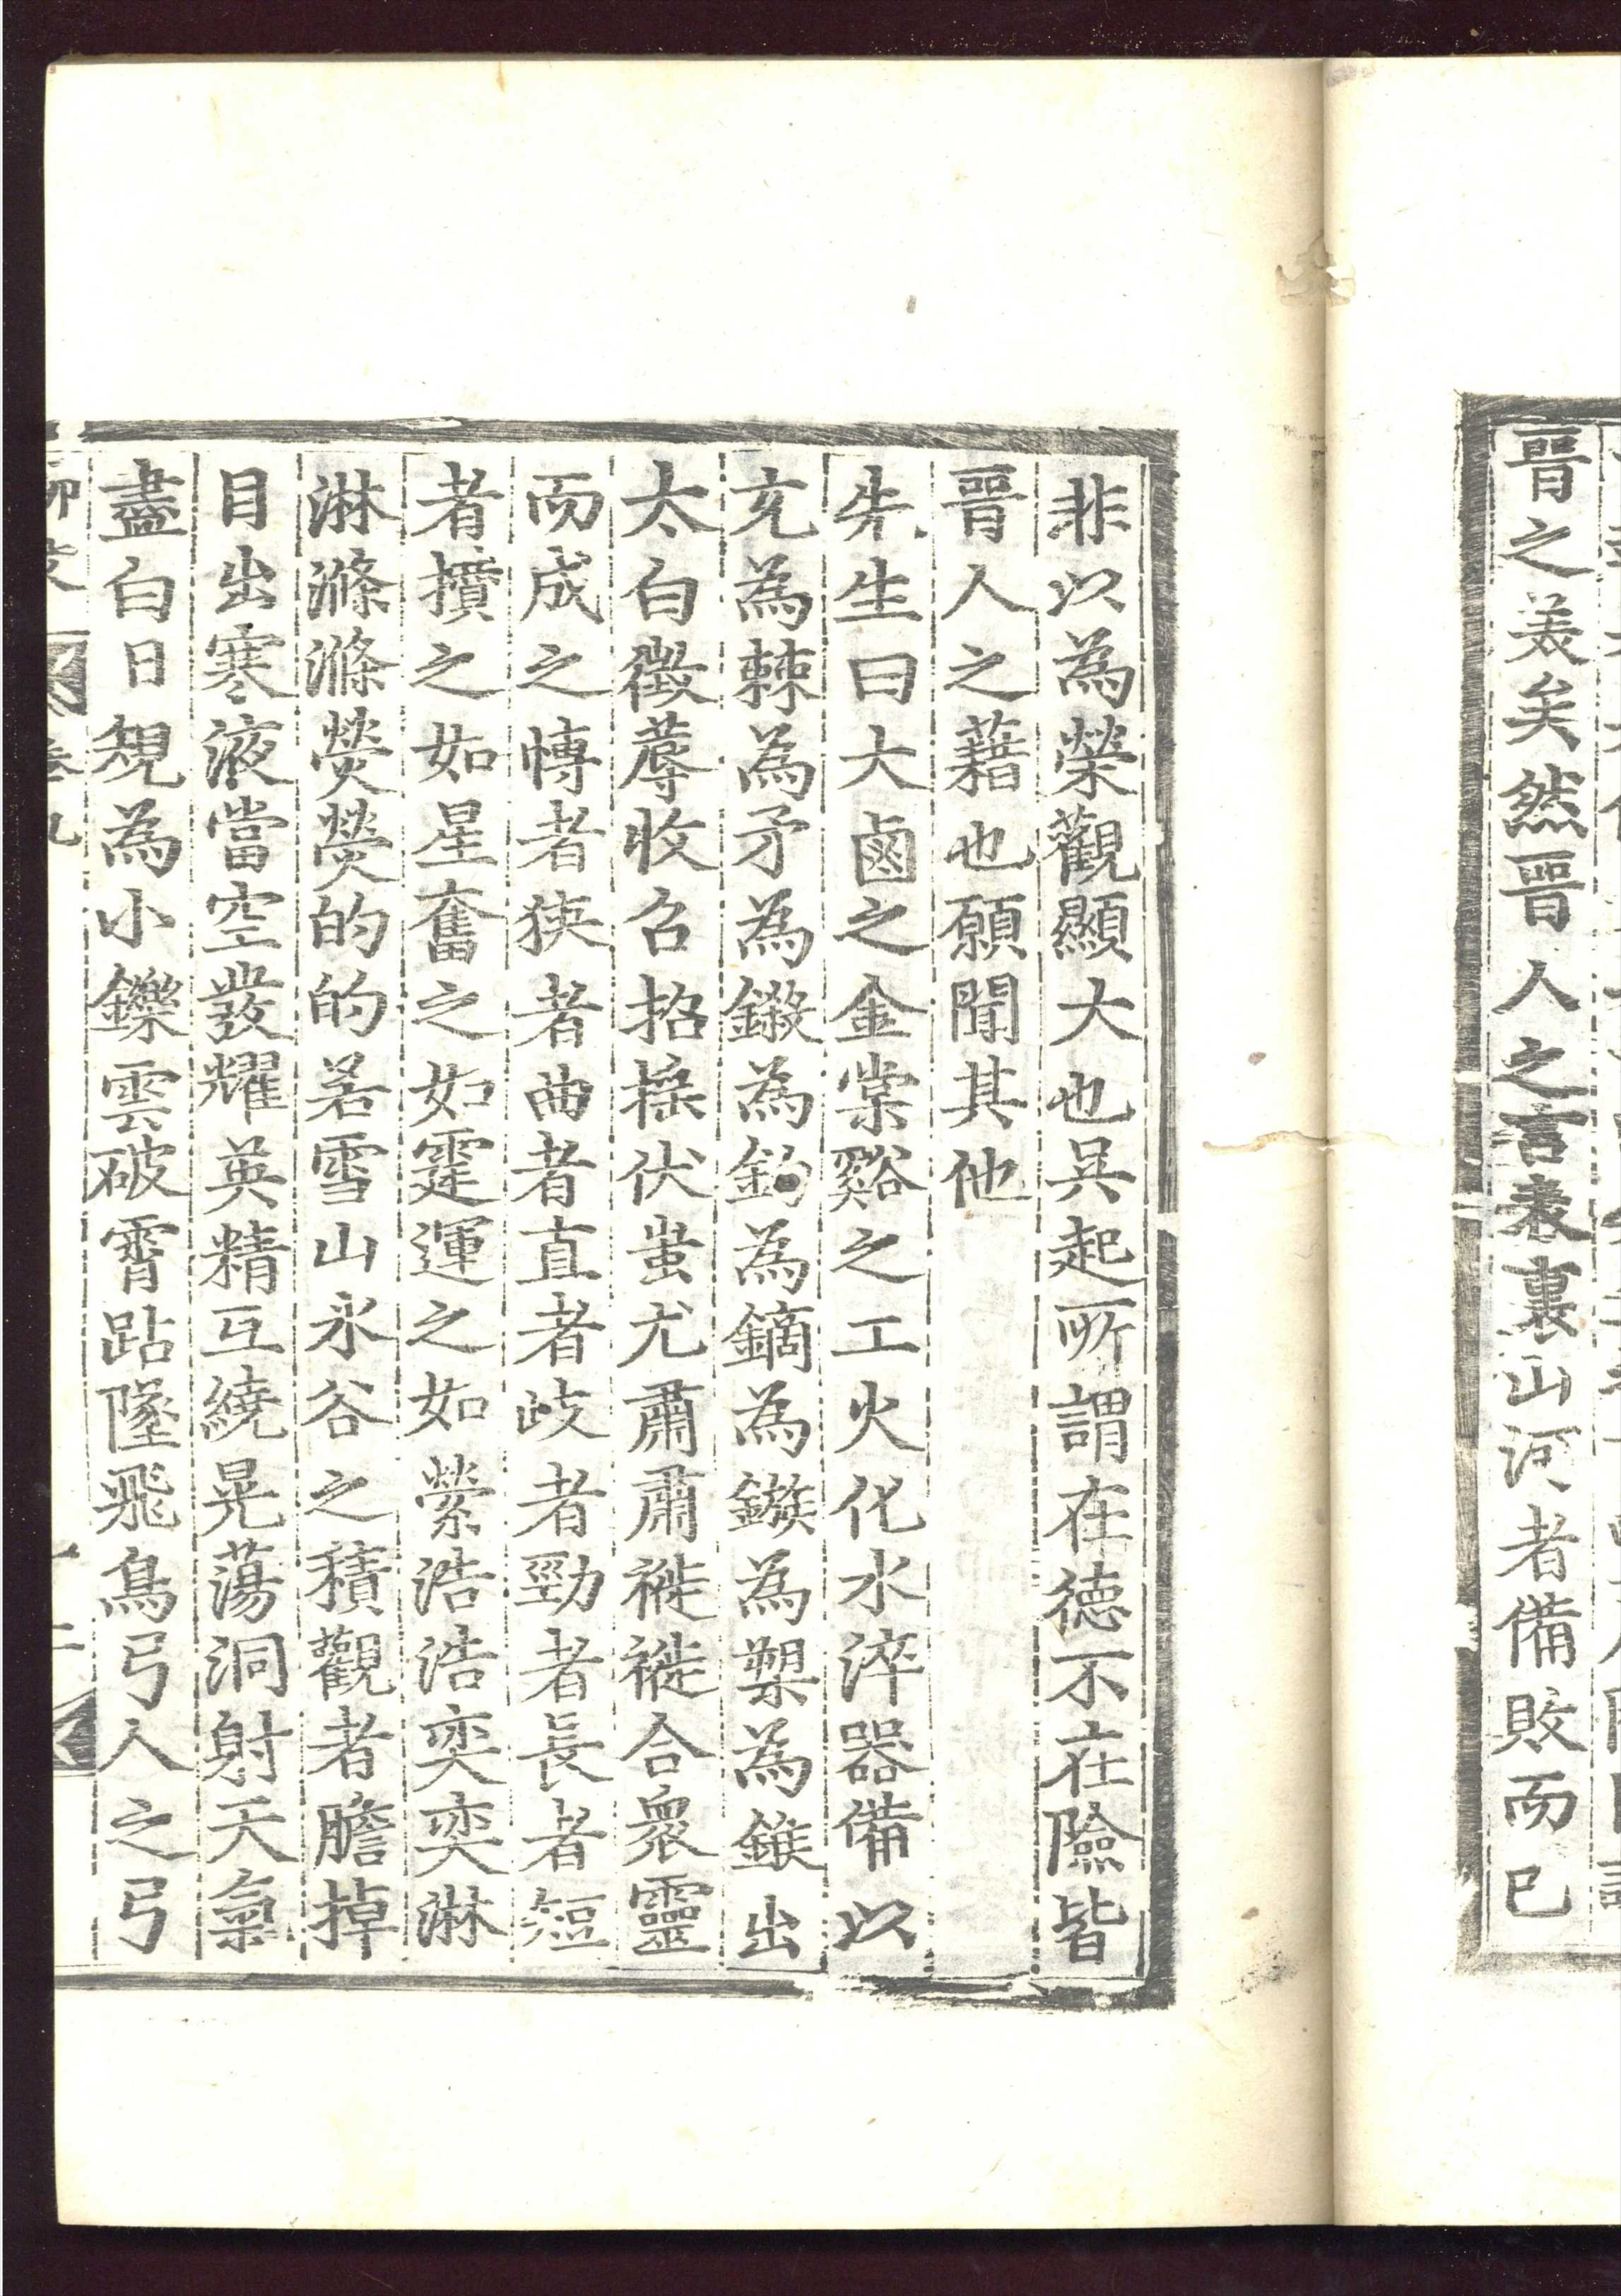 晉之美矣然晉人之言表裏山河者備敗而已
非以為榮觀顯大也吳起所謂在德不在險皆
晉人之藉也願聞其他
先生曰大鹵之金棠谿之工火化水淬器備以
充為棘為矛為鎩為鉤為鏑為鏃為槊為鍭出
太白徵蓐收召招搖伏蚩尤肅肅褷褷合衆靈
而成之博者狹者曲者直者歧者勁者長者短
者攢之如星奮之如霆運之如縈浩浩奕奕淋
淋滌滌熒熒的的若雪山氷谷之積觀者膽掉
目出寒液當空發耀英精互繞晃蕩洞射天氣
盡白日規為小鑠雲破霄跕墜飛鳥弓人之弓
卷九